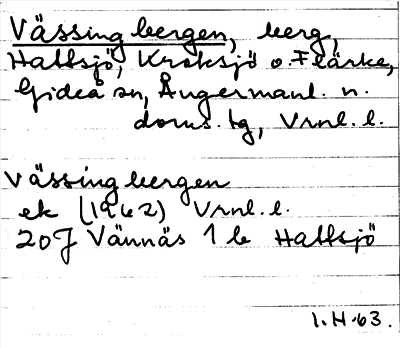 Vässingbergen, berg,
Hallsjö, Kroksjö o. Flärke,
Gideå sn, Ångermanl. n.
doms. tg, Vrnl. l.
Vässingbergen
ek (1962) Vrnl. l.
20J Vännäs 1 b Hallsjö
I. H. 63.